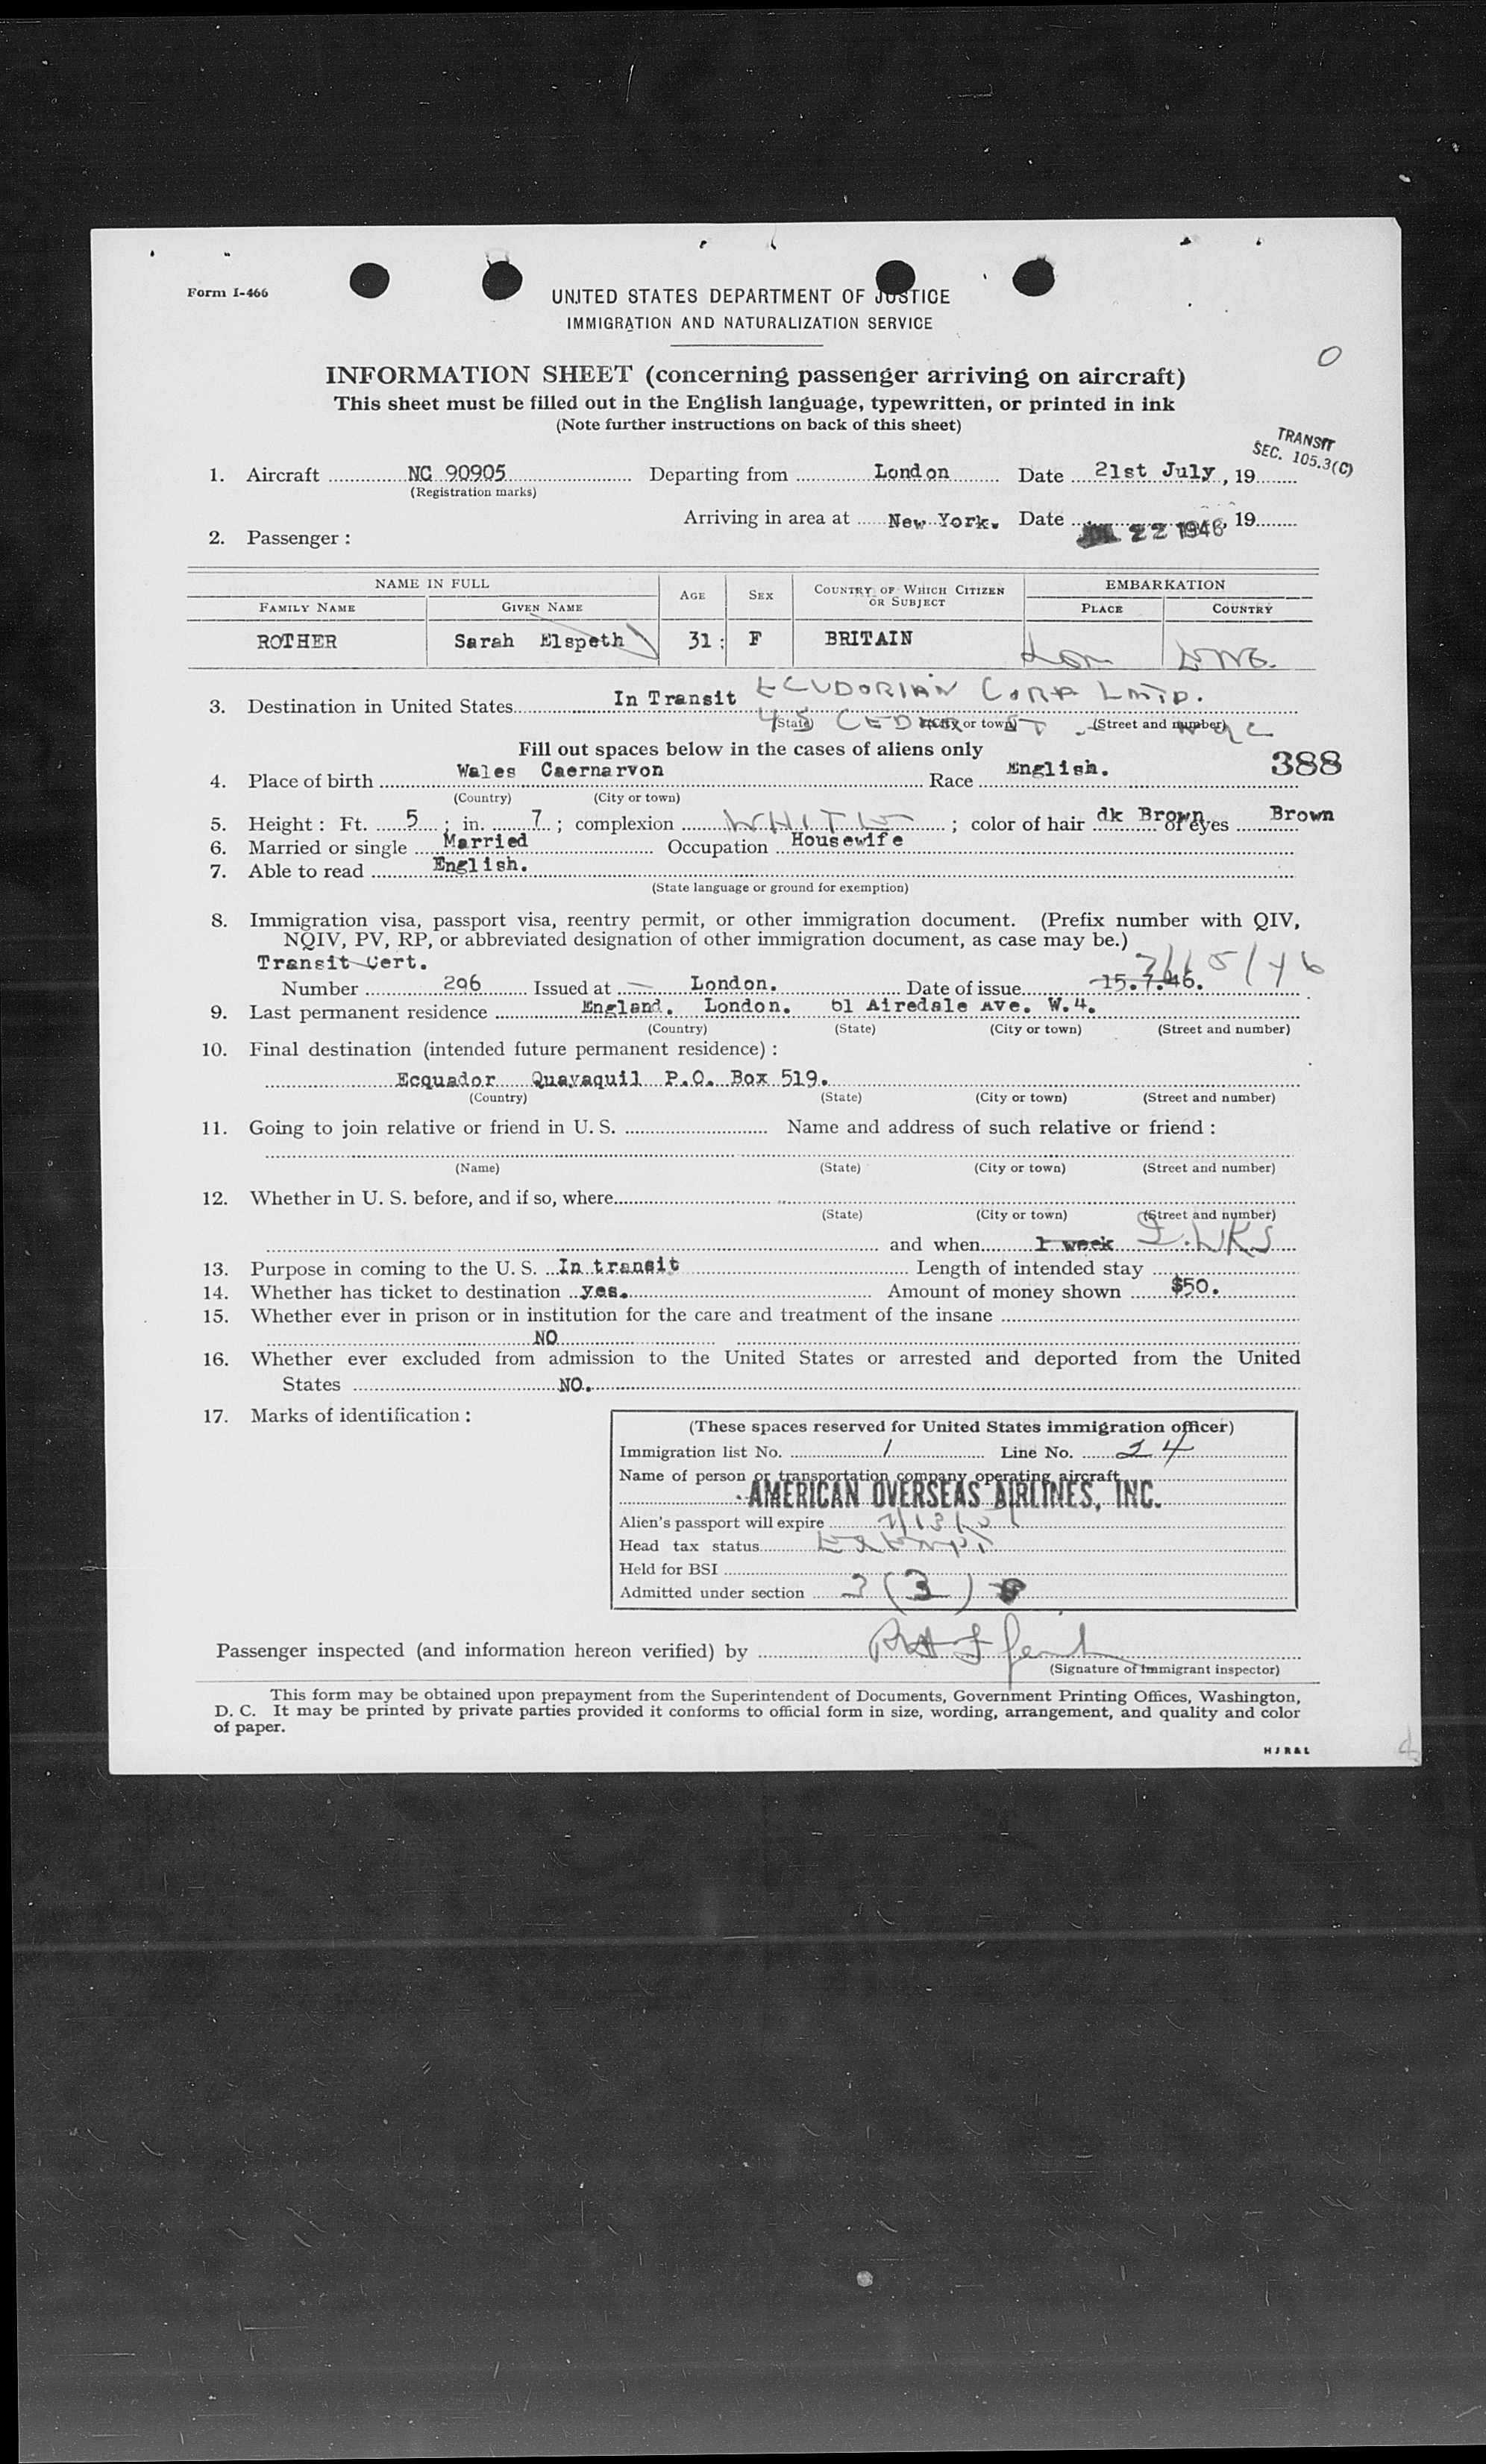 Form I-466
UNITED STATES DEPARTMENT OF JUSTICE
IMMIGRATION AND NATURALIZATION SERVICE
O
INFORMATION SHEET (concerning passenger arriving on aircraft)
This sheet must be filled out in the English language, typewritten, or printed in ink
(Note further instructions on back of this sheet)
TRANSIT
SEC. 105.3(C)
1. Aircraft NC 90905 Departing from London Date 21st July, 19
(Registration marks)
Arriving in area at New York. Date 22 1946, 19
2. Passenger:
NAME IN FULL AGE SEX COUNTRY OF WHICH CITIZEN OR SUBJECT EMBARKATION
FAMILY NAME GIVEN NAME PLACE COUNTRY
ROTHER Sarah Elspeth 31 F BRITAIN Lon ENG.
3. Destination in United States In Transit ECUDORIAN CORP LMTD.
(State) (City or town) (Street and number)
45 CEDAR ST NYC
Fill out spaces below in the cases of aliens only
388
4. Place of birth Wales Caernarvon Race English.
(Country) (City or town)
5. Height: Ft. 5; in. 7; complexion WHITE; color of hair dk Brown of eyes Brown
6. Married or single Married Occupation Housewife
7. Able to read English.
(State language or ground for exemption)
8. Immigration visa, passport visa, reentry permit, or other immigration document. (Prefix number with QIV,
NQIV, PV, RP, or abbreviated designation of other immigration document, as case may be.)
Transit Cert. 7/15/46
Number 296 Issued at London. Date of issue 15.7.46.
9. Last permanent residence England. London. 61 Airedale Ave. W.4.
(Country) (State) (City or town) (Street and number)
10. Final destination (intended future permanent residence):
Ecquador Quayaquil P.O. Box 519.
(Country) (State) (City or town) (Street and number)
11. Going to join relative or friend in U. S. Name and address of such relative or friend:
(Name) (State) (City or town) (Street and number)
12. Whether in U. S. before, and if so, where
(State) (City or town) (Street and number)
and when 1 week 2 WKS
13. Purpose in coming to the U. S. In transit Length of intended stay
14. Whether has ticket to destination yes. Amount of money shown $50.
15. Whether ever in prison or in institution for the care and treatment of the insane
NO
16. Whether ever excluded from admission to the United States or arrested and deported from the United
States NO.
17. Marks of identification:
(These spaces reserved for United States immigration officer)
Immigration list No. 1 Line No. 24
Name of person or transportation company operating aircraft
AMERICAN OVERSEAS AIRLINES, INC.
Alien's passport will expire
Head tax status Exempt
Held for BSI
Admitted under section 3 (3)
Passenger inspected (and information hereon verified) by
(Signature of immigrant inspector)
This form may be obtained upon prepayment from the Superintendent of Documents, Government Printing Offices, Washington,
D. C. It may be printed by private parties provided it conforms to official form in size, wording, arrangement, and quality and color
of paper.
HJR&L